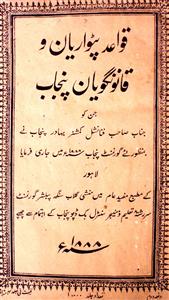 قواعد پٹواریان و
قانونگویان پنجاب
جن کو
جناب صاحب فنانشل کمشنر بہادر پنجاب نے
بمنظوری گورنمنٹ پنجاب میں جاری فرمایا
لاہور
کے مطبع مفید عام میں منشی گلاب سنگھ پبلشر گورنمنٹ
سررشتہ تعلیم و سنٹرل بک ڈپو پنجاب کے اہتمام سے چھپے
۱۸۸۸ء
تعداد جلد ۱۰۰۰